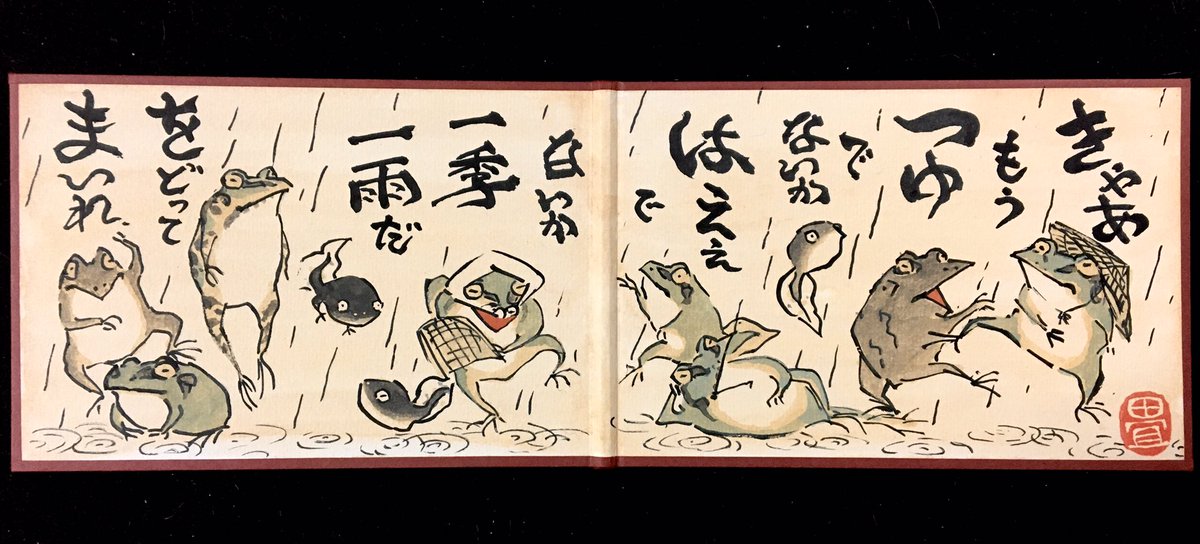 きゃあ
もう
つゆ
で
ないか
はええ
で
ないか
一季
一雨だ
をどって
まいれ
畳